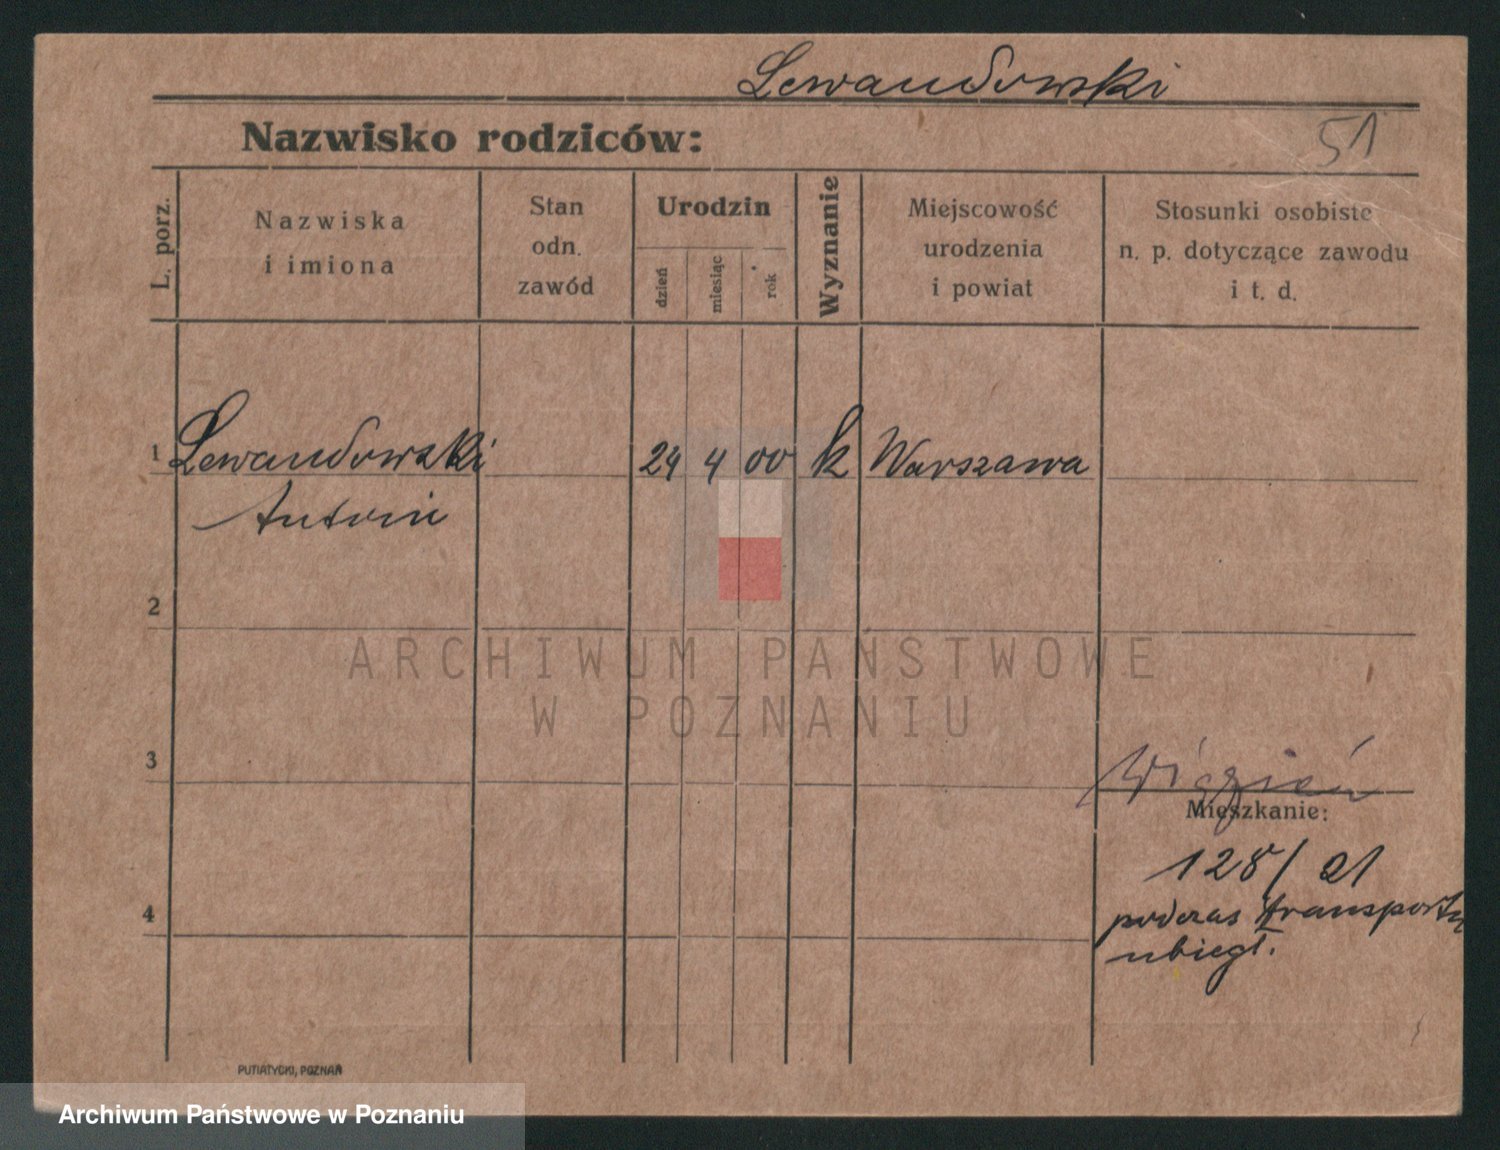 Lewandowski
Nazwisko rodziców:
51
L. porz.
Nazwiska
i imiona
Stan
odn.
zawód
Urodzin
dzień
miesiąc
rok
Wyznanie
Miejscowość
urodzenia
i powiat
Stosunki osobiste
n. p. dotyczące zawodu
i t. d.
1 Lewandowski 24 4 00 k Warszawa
Antoni
2
ARCHIWUM PAŃSTWOWE
W POZNANIU
3
Więzień
Mieszkanie:
128/21
4
podczas transportu
ubiegł.
PUTIATYCKI, POZNAŃ
Archiwum Państwowe w Poznaniu